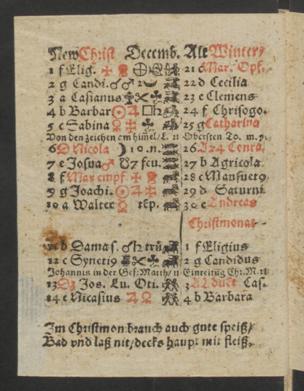 New Christ Decemb. Alt Winterm
1 f Elig. 21 c Mar. Opf.
2 g Candi. 22 d Cecilia
3 a Casianus 23 e Clemens
4 b Barbar 24 f Chrisogo.
5 c Sabina 25 g Catharina
Von den zeichen em himel/ L. 11 Obersten To. m. 9.
6 D Nicola 10.n. 26 A24 Conra.
7 e Josua 7 feu. 27 b Agricola
8 f Mar. empf. 28 c Mansueto
9 g Joachi. 29 d Saturni
10 a Walter 30 e Andreas
Christmonat
11 b Damas. trü 1 f Eligius
12 c Synetig 2 g Candidus
Johannis in der Gef: Matth/ 11 Einreitg Chr. M. 21
13 D3 Jos. Lu. Oti. 3 A1 Advet Cas.
14 e Nicasius 4 b Barbara
Im Christmon brauch auch gute speiß/
Bad und laß nit/ decks haupt mit fleiß.